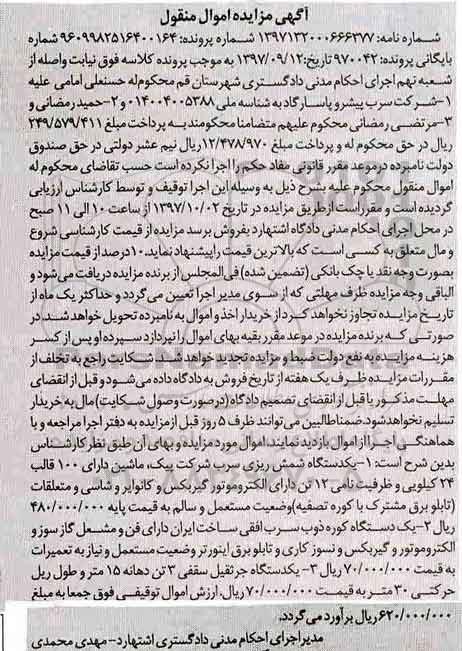 آگهی مزایده اموال منقول
شماره نامه: ۱۳۹۷۱۳۲۰۰۰۶۶۶۳۷۷ شماره پرونده: ۹۶۰۹۹۸۲۵۱۶۴۰۰۱۶۴ شماره
بایگانی پرونده: ۹۷۰۰۴۲ تاریخ: ۱۳۹۷/۰۹/۱۲ به موجب پرونده کلاسه فوق نیابت واصله از
شعبه نهم اجرای احکام مدنی دادگستری شهرستان قم محکوم‌له حسنعلی امامی علیه
۱-شرکت سرب پیشرو پاسارگاد به شناسه ملی ۱۴۰۰۴۰۰۵۳۸۸ و ۲-حمید رمضانی و
۳-مرتضی رمضانی محکوم علیهم متضامنا محکومند به پرداخت مبلغ ۲۴۹/۵۷۹/۴۱۱
ریال در حق محکوم له و پرداخت مبلغ ۱۲/۴۷۸/۹۷۰ریال نیم عشر دولتی در حق صندوق
دولت نامبرده در موعد مقرر قانونی مفاد حکم را اجرا نکرده است حسب تقاضای محکوم له
اموال منقول محکوم علیه بشرح ذیل به وسیله این اجرا توقیف و توسط کارشناس ارزیابی
گردیده است و مقرر است از طریق مزایده در تاریخ ۱۳۹۷/۱۰/۰۲ از ساعت ۱۰ الی ۱۱ صبح
در محل اجرای احکام مدنی دادگاه اشتهارد بفروش برسد مزایده از قیمت کارشناسی شروع
و مال متعلق به کسی است که بالاترین قیمت را پیشنهاد نماید. ۱۰درصد از قیمت مزایده
بصورت وجه نقد یا چک بانکی (تضمین شده) فی المجلس از برنده مزایده دریافت می‌شود و
الباقی وجه مزایده ظرف مهلتی که از سوی مدیر اجرا تعیین می گردد و حداکثر یک ماه از
تاریخ مزایده تجاوز نخواهد کرد از خریدار اخذ و اموال به نامبرده تحویل خواهد شد. در
صورتی که برنده مزایده در موعد مقرر بقیه بهای اموال را نپردازد سپرده او پس از کسر
هزینه مزایده به نفع دولت ضبط و مزایده تجدید خواهد شد شکایت راجع به تخلف از
مقررات مزایده ظرف یک هفته از تاریخ فروش به دادگاه داده می‌شود و قبل از انقضای
مهلت مذکور یا قبل از انقضای تصمیم دادگاه (در صورت وصول شکایت) مال به خریدار
تسلیم نخواهد شود. ضمنا طالبین می توانند ظرف ۵ روز قبل از مزایده به دفتر اجرا مراجعه و با
هماهنگی اجرا از اموال بازدید نمایند. اموال مورد مزایده و بهای آن طبق نظر کارشناس
بدین شرح است: ۱-یکدستگاه شمش ریزی سرب شرکت پیک، ماشین دارای ۱۰۰ قالب
۲۴ کیلویی و ظرفیت نامی ۱۲ تن دارای الکتروموتور گیربکس و کانوایر و شاسی و متعلقات
(تابلو برق مشترک با کوره تصفیه) وضعیت مستعمل و سالم به قیمت پایه ۴۸۰/۰۰۰/۰۰۰
ریال ۲-یک دستگاه کوره ذوب سرب افقی ساخت ایران دارای فن و مشعل گاز سوز و
الکتروموتور و گیربکس و نسوز کاری و تابلو برق اینورتر وضعیت مستعمل و نیاز به تعمیرات
به قیمت ۷۰/۰۰۰/۰۰۰ ریال ۳- یکدستگاه جرثقیل سقفی ۳ تن دهانه ۱۵ متر و طول ریل
حرکتی ۳۰ متر به قیمت ۷۰/۰۰۰/۰۰۰ ریال. ارزش اموال توقیفی فوق جمعا به مبلغ
۶۲۰/۰۰۰/۰۰۰ ریال برآورد می گردد.
مدیر اجرای احکام مدنی دادگستری اشتهارد- مهدی محمدی